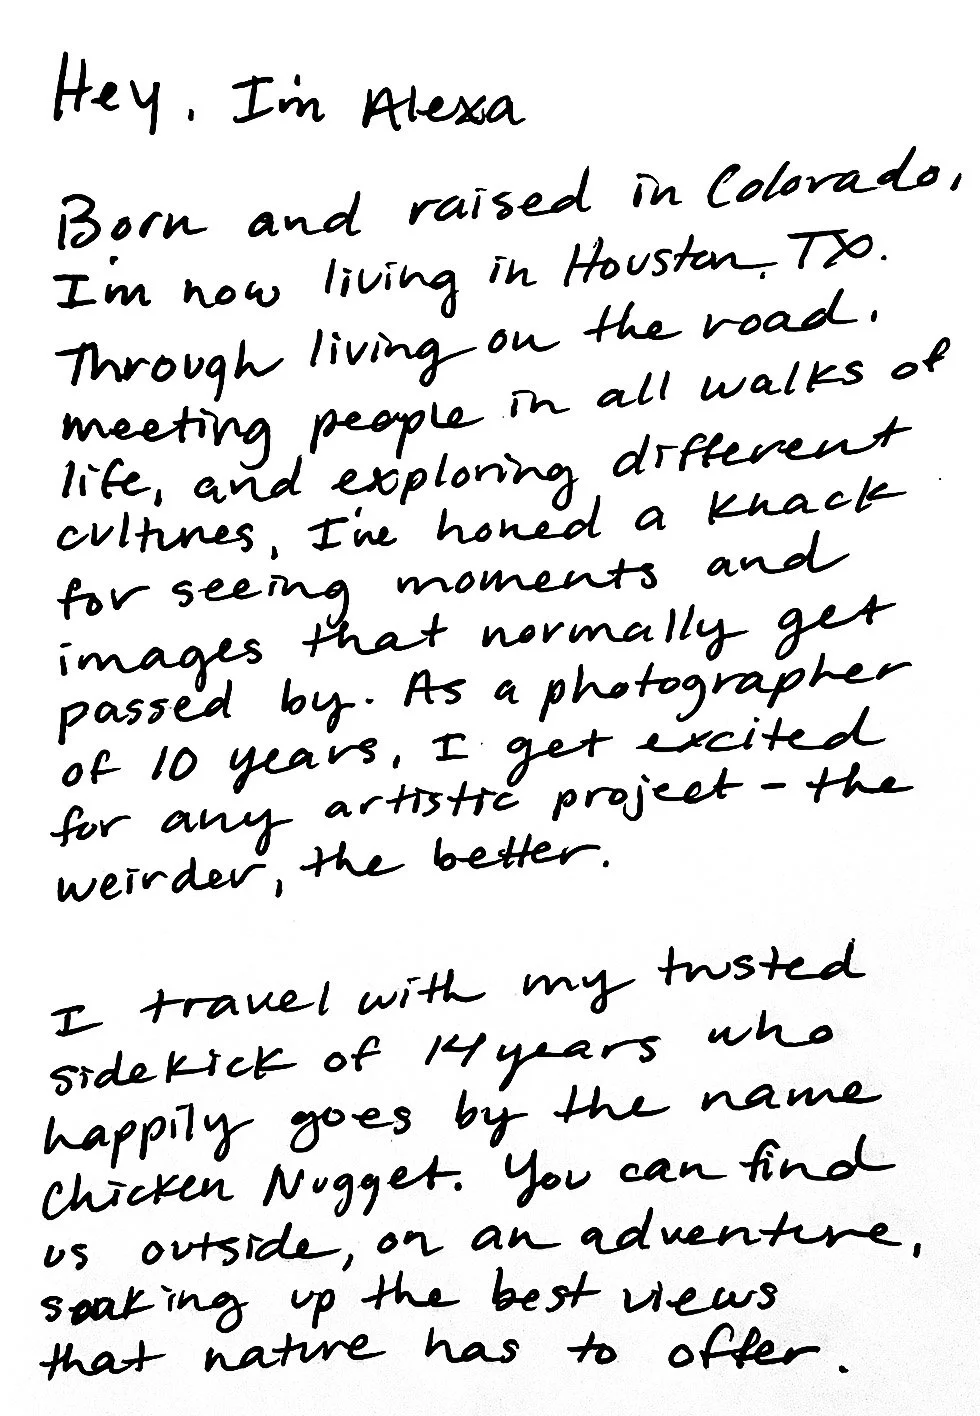 Hey, I'm Alexa
Born and raised in Colorado,
I'm now living in Houston, TX.
Through living on the road,
meeting people in all walks of
life, and exploring different
cultures, I've honed a knack
for seeing moments and
images that normally get
passed by. As a photographer
of 10 years, I get excited
for any artistic project - the
weirder, the better.
I travel with my trusted
sidekick of 14 years who
happily goes by the name
Chicken Nugget. You can find
us outside, on an adventure,
soaking up the best views
that nature has to offer.